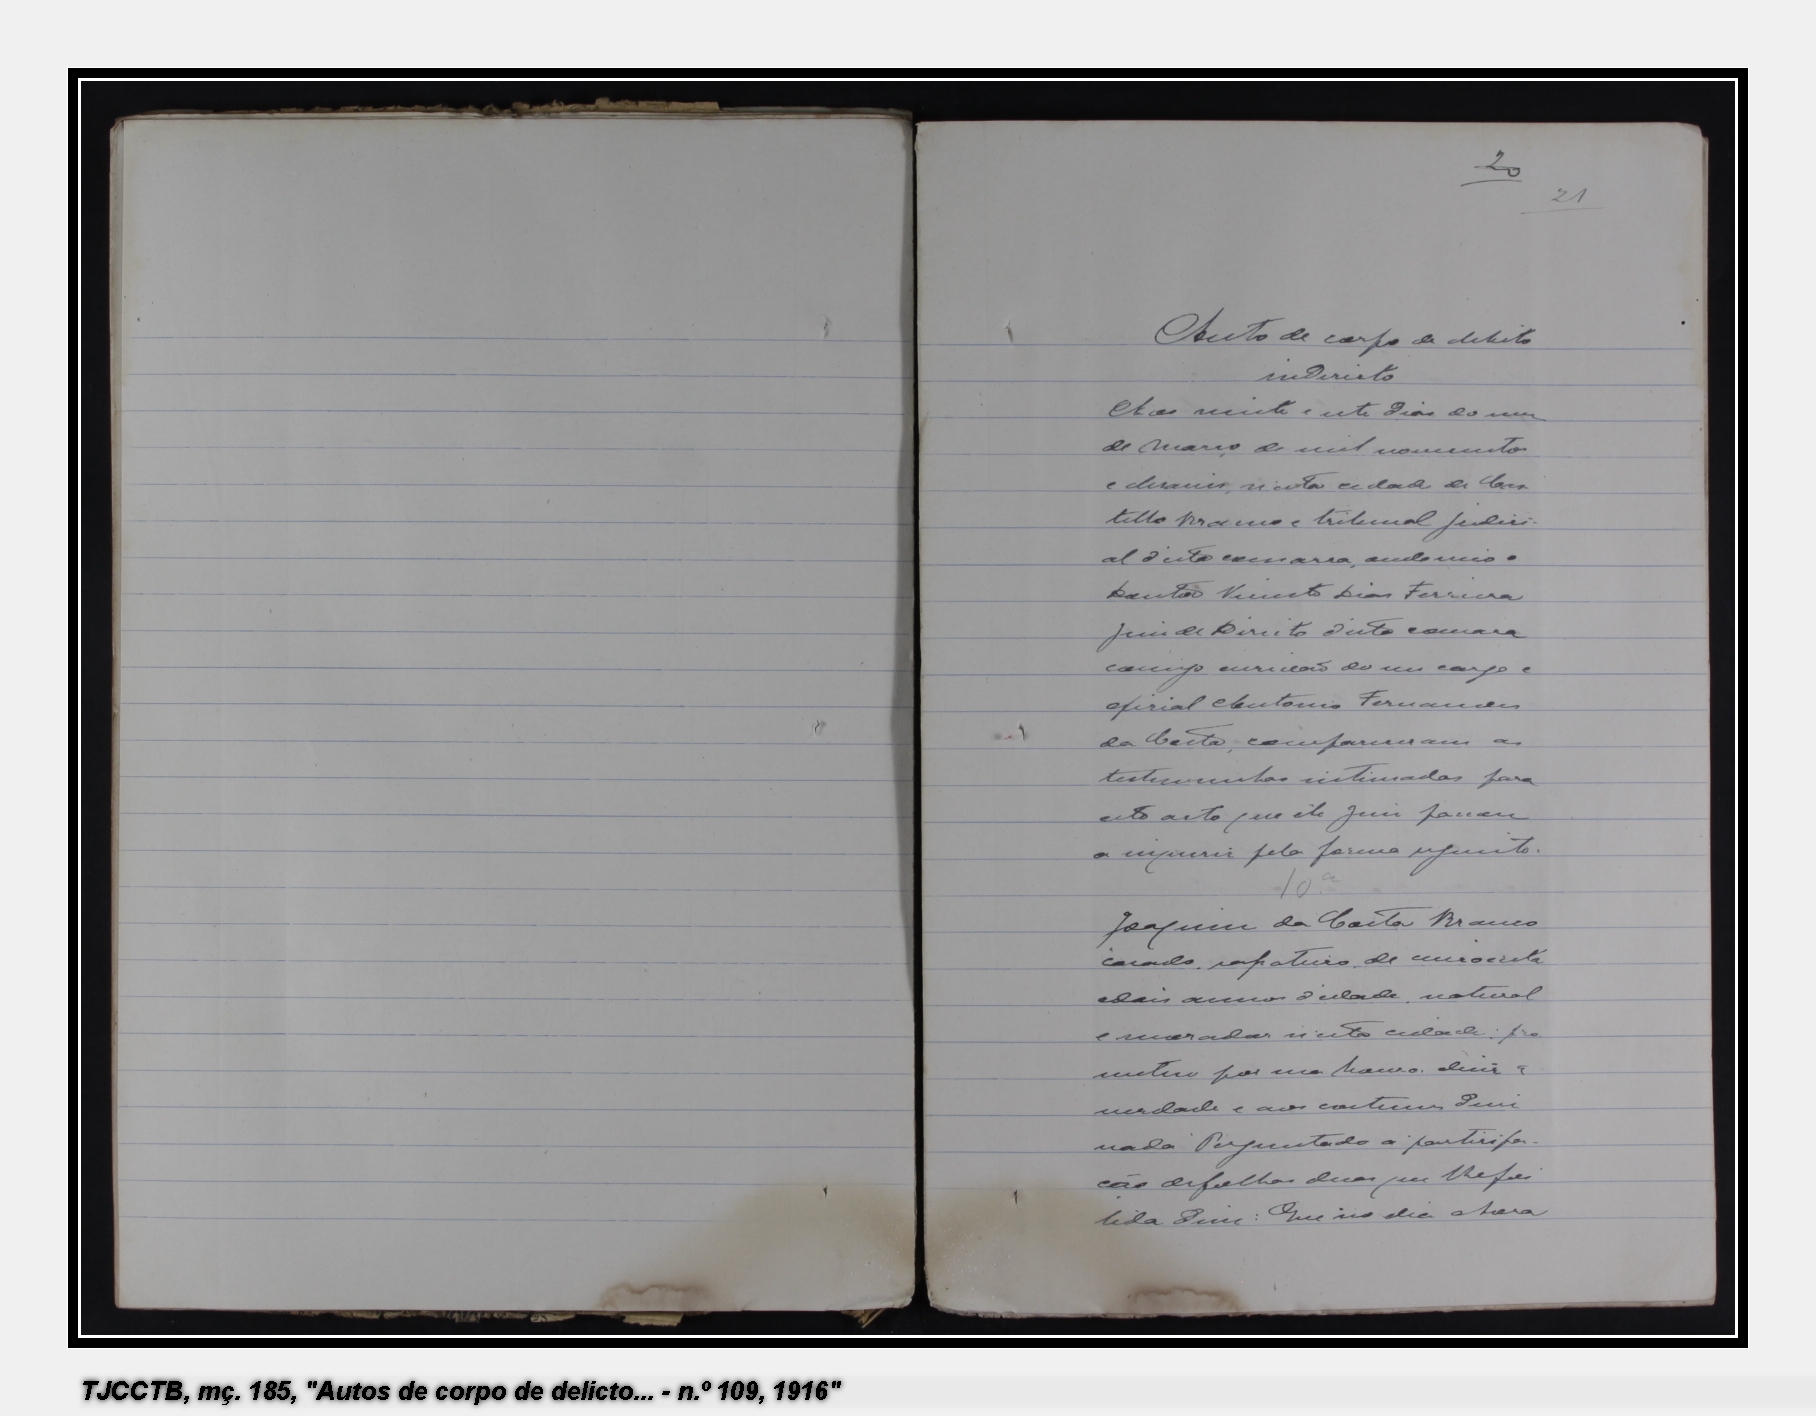 20
21
Auto de corpo de delicto
indirecto
Aos vinte e sete dias do mez
de Março de mil novecentos
e dezaseis, n'esta cidade de Cas-
tello Branco e tribunal judici-
al d'esta comarca, onde veio o
Doutor Vicente Dias Ferreira
Juiz de Direito d'esta comarca
comigo escrivão do seu cargo e
oficial Antonio Fernandes
da Costa, compareceram as
testemunhas intimadas para
este acto que ele Juiz passou
a inquirir pela forma seguinte.
10.ª
Joaquim da Costa Branco
casado, sapateiro, de cincoenta
e dois annos d'edade, natural
e morador n'esta cidade: pro
meteu por sua honra dizer a
verdade e aos costumes disse
nada. Perguntado á participa-
ção de folhas duas que lhe foi
lida disse: Que no dia e hora
TJCCTB, mç. 185, "Autos de corpo de delicto... - n.º 109, 1916"